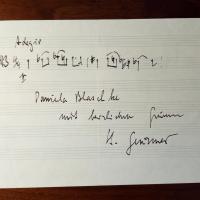 Adagio
Daniela Blaschke
mit herzlichen Grüßen
H.